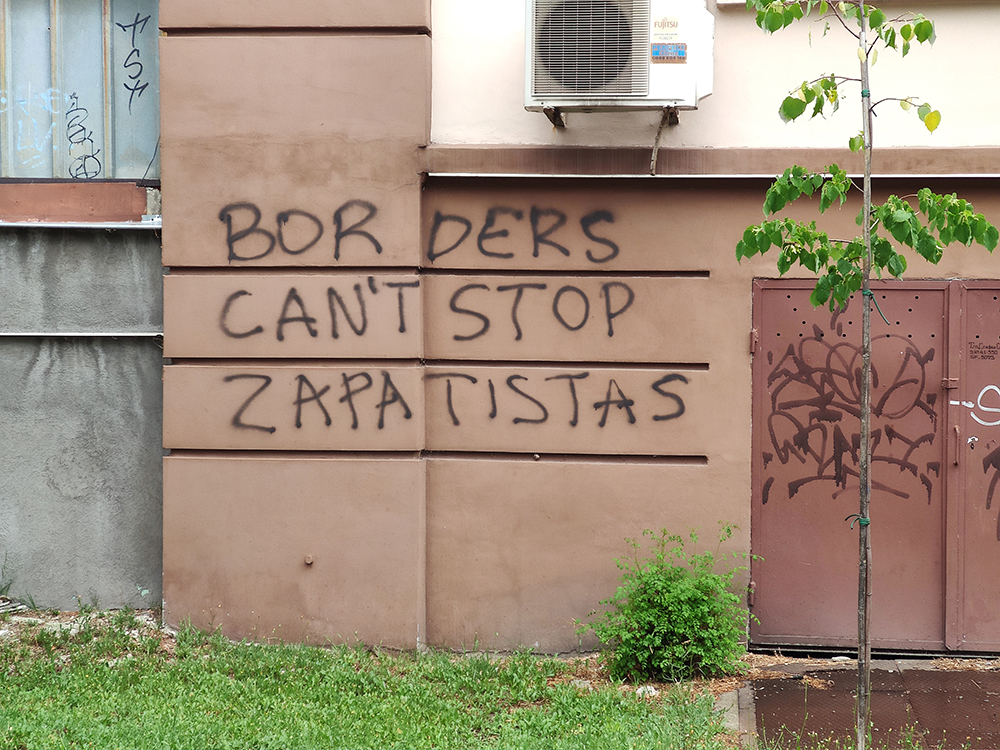 TST
FUJITSU
BORDERS
CAN'T STOP
ZAPATISTAS